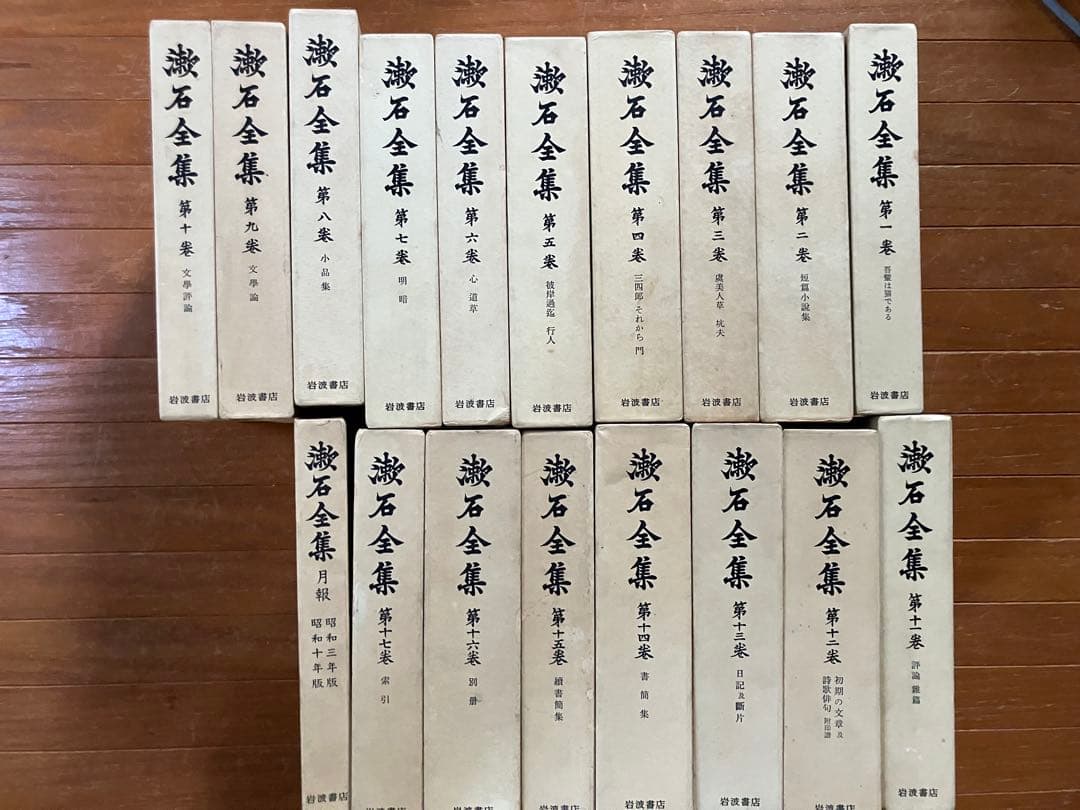 漱石全集 第一卷 吾輩は猫である 岩波書店
漱石全集 第二卷 短篇小說集 岩波書店
漱石全集 第三卷 虞美人草 坑夫 岩波書店
漱石全集 第四卷 三四郎 それから 門 岩波書店
漱石全集 第五卷 彼岸過迄 行人 岩波書店
漱石全集 第六卷 心 道草 岩波書店
漱石全集 第七卷 明暗 岩波書店
漱石全集 第八卷 小品集 岩波書店
漱石全集 第九卷 文學論 岩波書店
漱石全集 第十卷 文學評論 岩波書店
漱石全集 第十一卷 評論 雜篇 岩波書店
漱石全集 第十二卷 初期の文章及
詩歌俳句 附印譜 岩波書店
漱石全集 第十三卷 日記及斷片 岩波書店
漱石全集 第十四卷 書簡集 岩波書店
漱石全集 第十五卷 續書簡集 岩波書店
漱石全集 第十六卷 別册 岩波書店
漱石全集 第十七卷 索引 岩波書店
漱石全集 月報 昭和三年版
昭和十年版 岩波書店